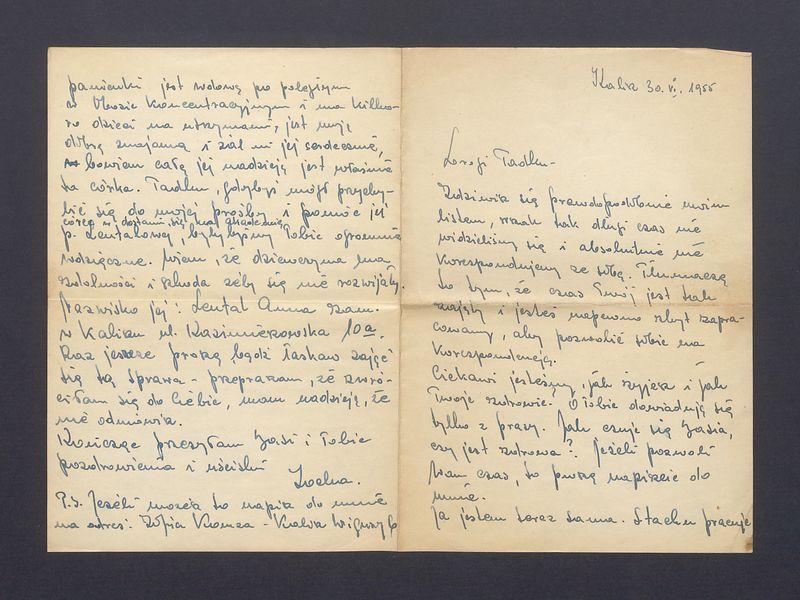 Kalisz 30.VI. 1955
Drogi Tadku -
Zdziwisz się prawdopodobnie moim
listem, wszak tak długi czas nie
widzieliśmy się i absolutnie nie
korespondujemy ze sobą. Tłumaczę
to tym, że czas Twój jest tak
zajęty i jesteś napewno zbyt zapra-
cowany, aby pozwolić sobie na
korespondencję.
Ciekawi jesteśmy, jak żyjesz i jak
Twoje zdrowie. O Tobie dowiaduję się
tylko z prasy. Jak czuje się Zosia,
czy jest zdrowa? Jeżeli pozwoli
Wam czas, to proszę napiszcie do
mnie.
Ja jestem teraz sama. Stach pracuje
panienki jest wdową po poległym
w Obozie Koncentracyjnym i ma kilko-
ro dzieci na utrzymaniu, jest moją
dobrą znajomą i żal mi jej serdecznie,
bowiem całą jej nadzieją jest właśnie
ta córka. Tadku, gdybyś mógł przychy-
lić się do mojej prośby i pomóc jej
córce w dostaniu się na Akademię
p. Lentasowej, byłybyśmy Tobie ogromnie
wdzięczne. Wiem, że dziewczyna ma
zdolności i szkoda żeby się nie rozwijały.
Nazwisko jej: Lentas Anna zam.
w Kaliszu ul. Kazimierzowska 10a.
Raz jeszcze proszę bądź łaskaw zająć
się tą sprawą - przepraszam, że zwró-
ciłam się do Ciebie, mam nadzieję, że
nie odmówisz.
Kończąc przesyłam Zosi i Tobie
pozdrowienia i uściski
Zocha.
P.S. Jeżeli możesz to napisz do mnie
na adres: Zofia - Kalisz